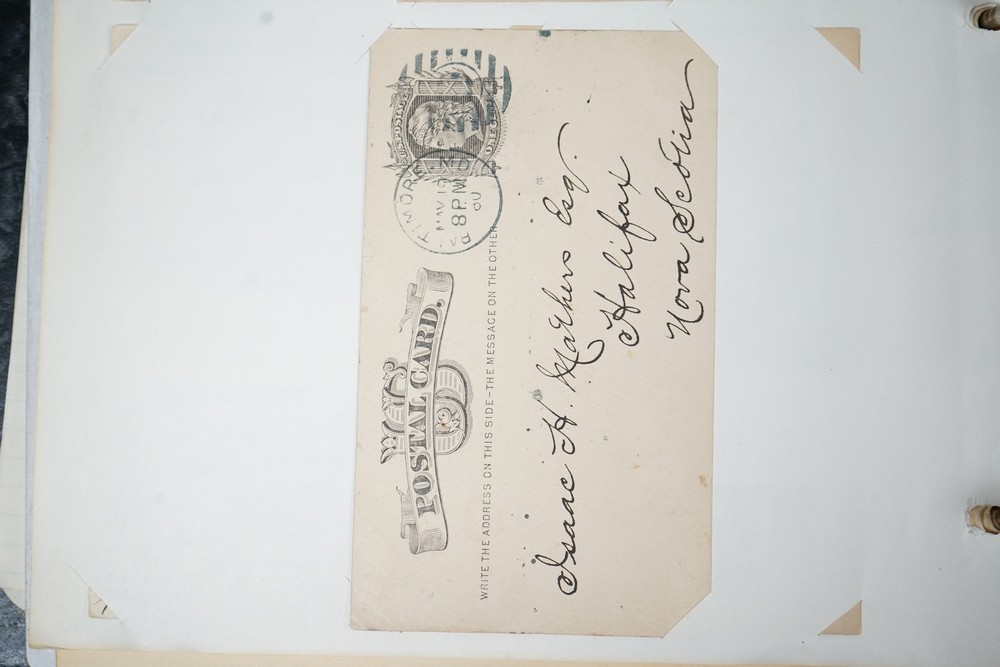 US
POSTAL CARD.
WRITE THE ADDRESS ON THIS SIDE-THE MESSAGE ON THE OTHER
U.S. POSTAGE
ONE CENT
8 PM
Isaac H. Mathers Esq.
Halifax
Nova Scotia